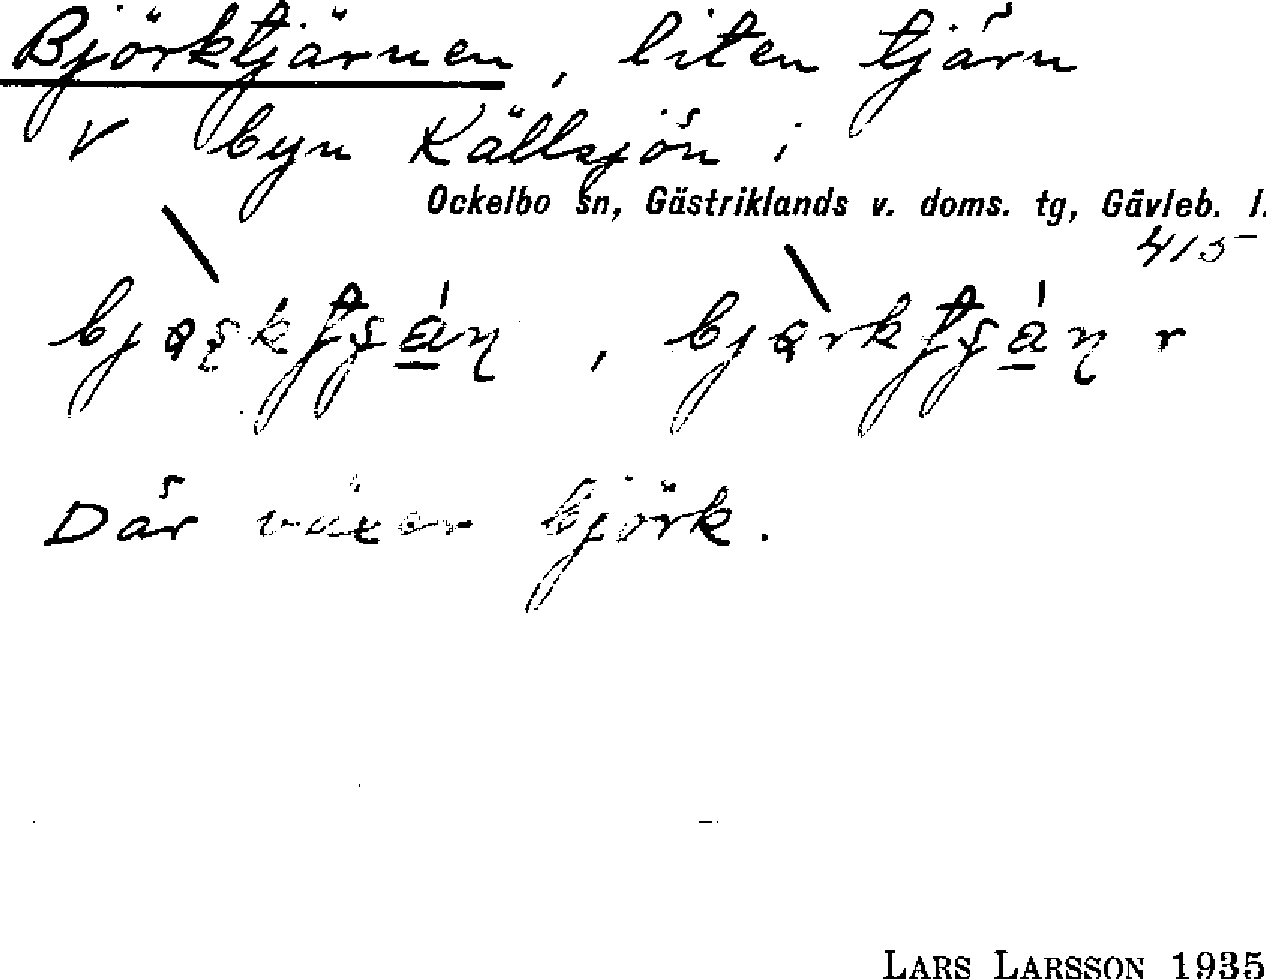 Björktjärnen, liten tjärn
V byn Källsjön i
Ockelbo sn, Gästriklands v. doms. tg, Gävleb. l.
415
Där växer björk.
LARS LARSSON 1935